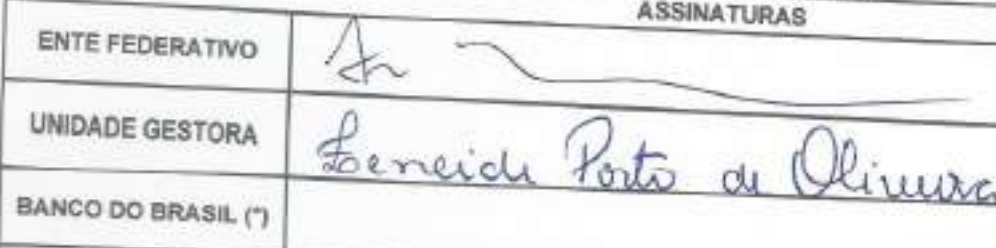 ASSINATURAS
ENTE FEDERATIVO
UNIDADE GESTORA Leneide Porto de Oliveira
BANCO DO BRASIL (*)